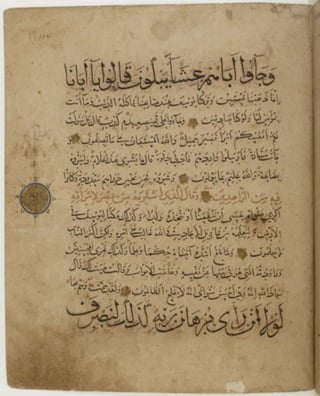 114
وجاؤا اباهم عشاء يبكون قالوا يا ابانا
انا ذهبنا نستبق وتركنا يوسف عند متاعنا فاكله الذئب وما انت
بمؤمن لنا ولو كنا صادقين وجاؤا على قميصه بدم كذب قال بل سولت
لكم انفسكم امرا فصبر جميل والله المستعان على ما تصفون و
جاءت سيارة فارسلوا واردهم فادلى دلوه قال يا بشرى هذا غلام واسروه
بضاعة والله عليم بما يعملون وشروه بثمن بخس دراهم معدودة وكانوا
فيه من الزاهدين وقال الذي اشتريه من مصر لامراته
اكرمي مثواه عسى ان ينفعنا او نتخذه ولدا وكذلك مكنا ليوسف في
الارض ولنعلمه من تاويل الاحاديث والله غالب على امره ولكن اكثر الناس
لا يعلمون ولما بلغ اشده آتيناه حكما وعلما وكذلك نجزي المحسنين
وراودته التي هو في بيتها عن نفسه وغلقت الابواب وقالت هيت لك قال
معاذ الله انه ربي احسن مثواي انه لا يفلح الظالمون ولقد همت به وهم بها
لولا ان رأى برهان ربه كذلك لنصرف